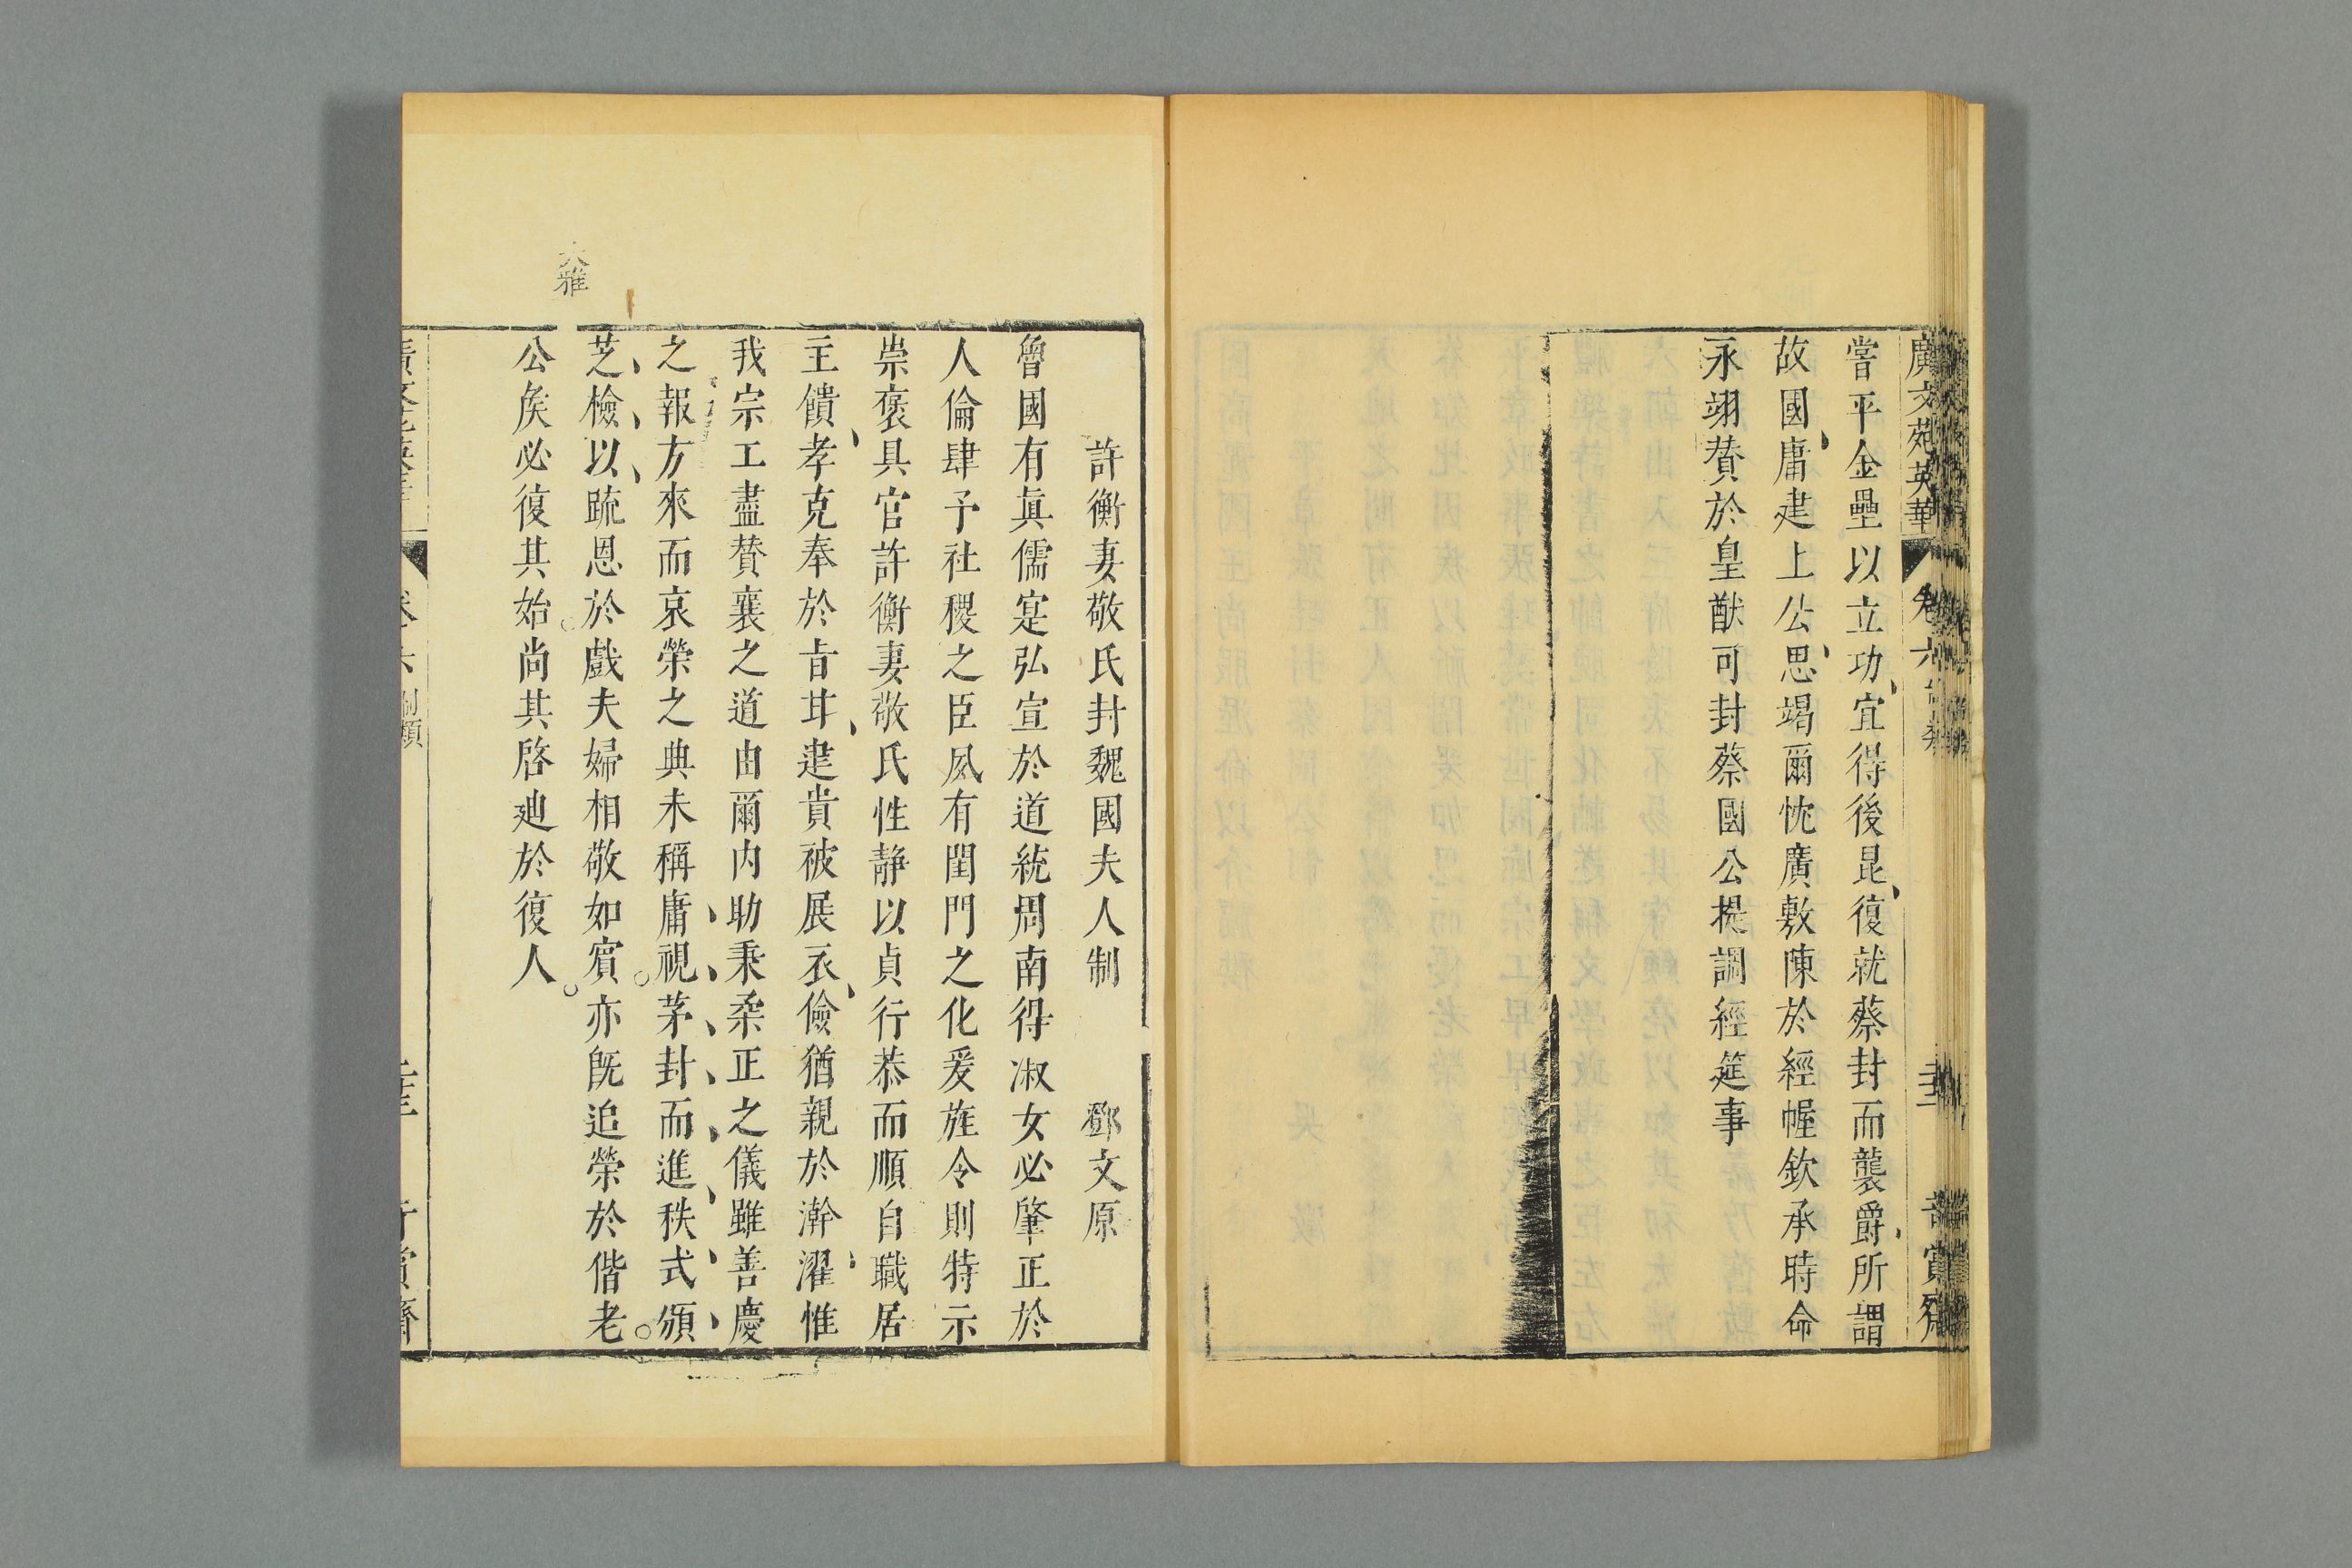 廣文苑英華
卷六
嘗平金壘以立功宜得後昆復就蔡封而襲爵所謂
故國庸建上公思竭爾忱廣敷陳於經幄欽承時命
永翊賛於皇猷可封蔡國公提調經筵事
許衡妻敬氏封魏國夫人制 鄧文原
魯國有眞儒寔弘宣於道統周南得淑女必肇正於
人倫肆予社稷之臣夙有閨門之化爰旌令則特示
崇褒具官許衡妻敬氏性靜以貞行恭而順自職居
主饋孝克奉於旨甘逮貴被展衣儉猶親於澣濯惟
我宗工盡賛襄之道由爾内助秉柔正之儀雖善慶
之報方來而哀榮之典未稱庸視茅封而進秩式頒
芝檢以疏恩於戲夫婦相敬如賓亦既追榮於偕老
公矦必復其始尚其啓廸於復人
大雅